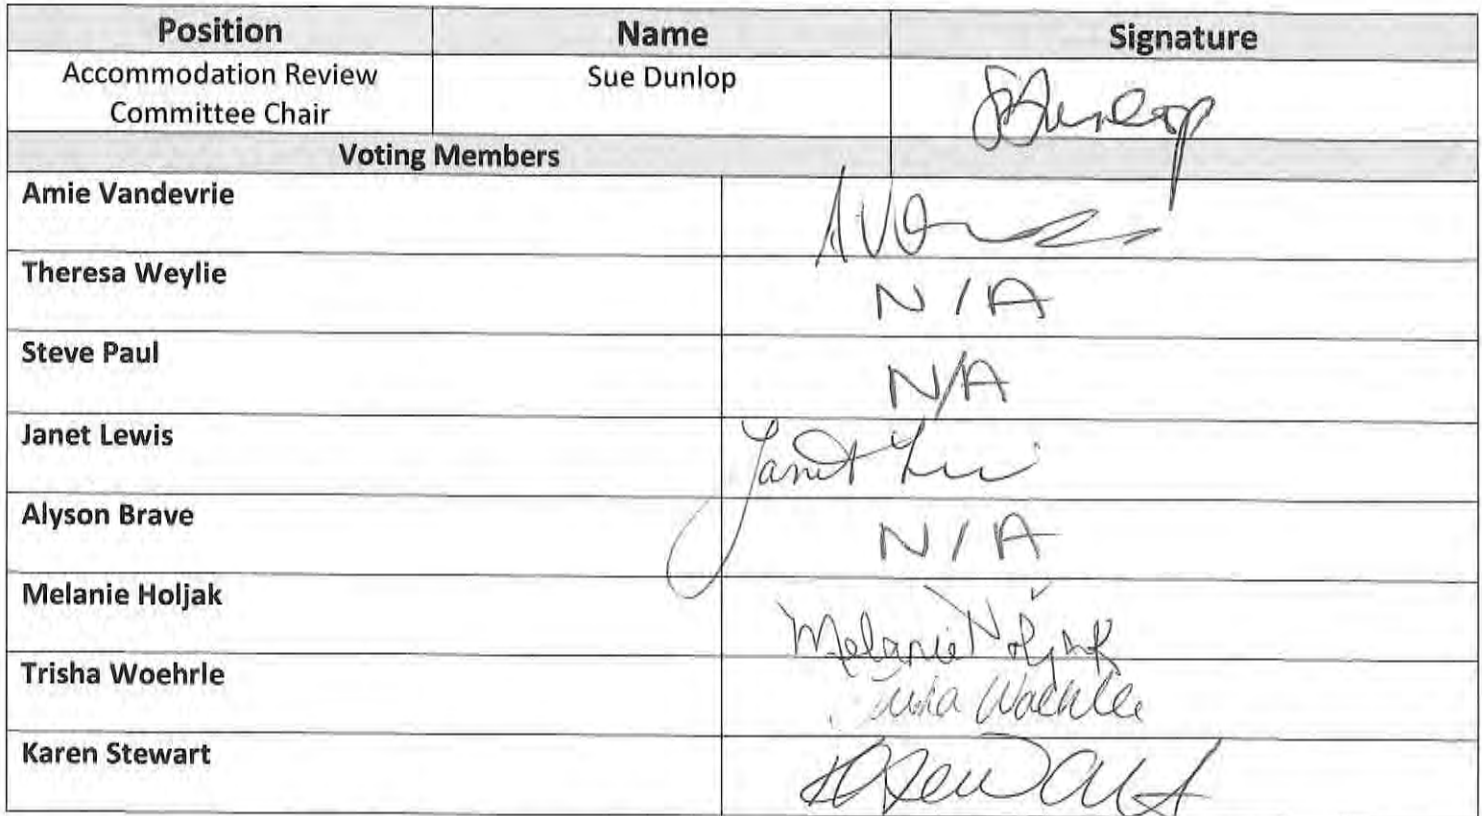 Position Name Signature
Accommodation Review Sue Dunlop SDunlop
Committee Chair
Voting Members
Amie Vandevrie
Theresa Weylie N/A
Steve Paul N/A
Janet Lewis Janet
Alyson Brave N/A
Melanie Holjak Melanie Holjak
Trisha Woehrle Woehrle
Karen Stewart KStewart